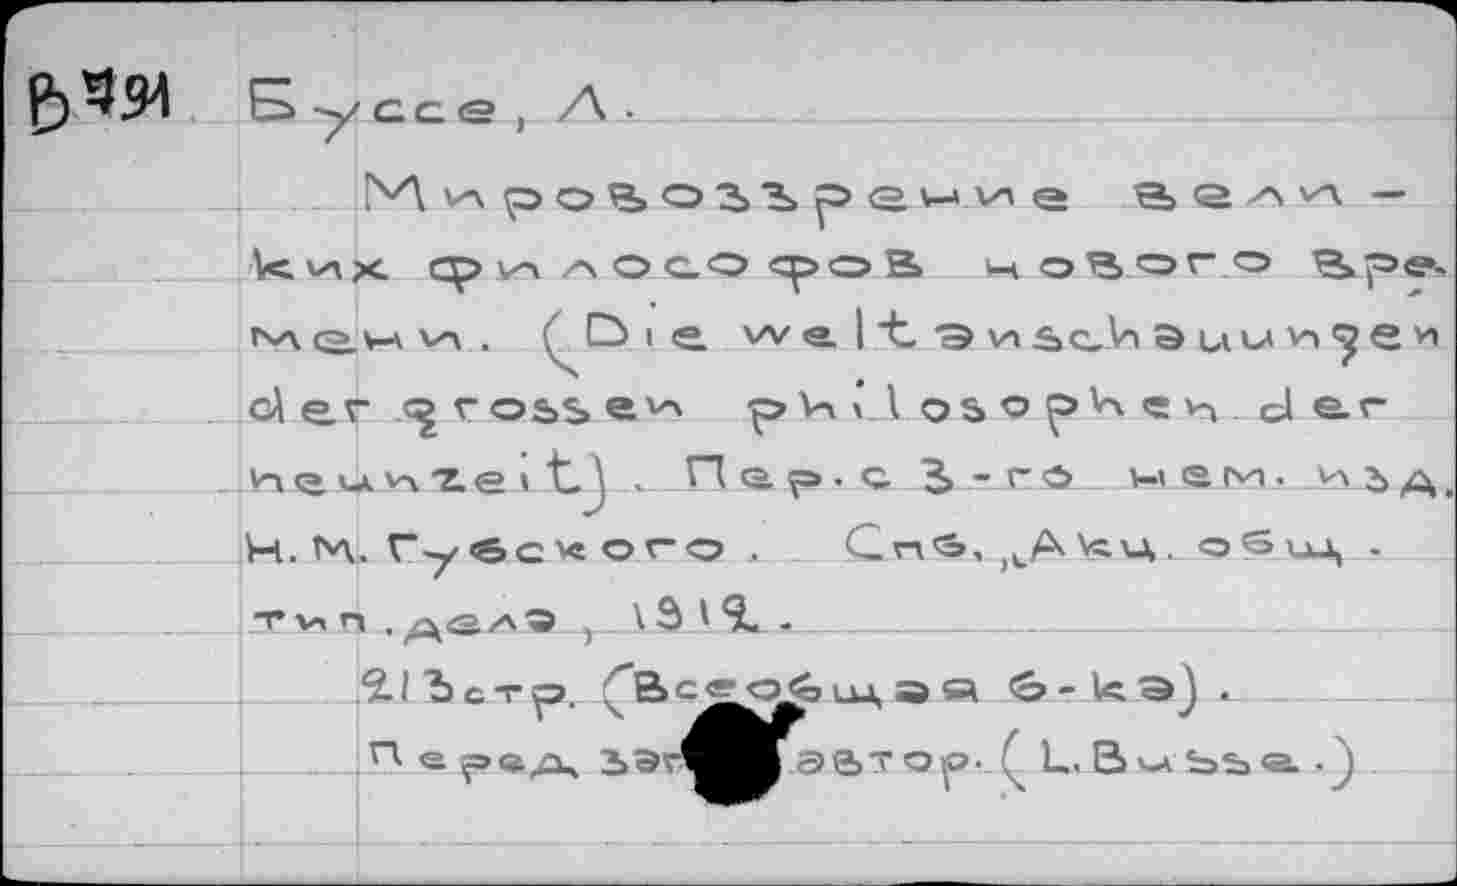 Буссе, Л.
Мировоззрение вели-
ких философов нового вре-
мени. (Die Weltanschauungen
der grossen philosophen der
neunzeit). Пер. с 3-го нем. изд.
Н. М. Губского. Спб, „Акц. общ.
тип. дела, 1912.
213стр. (Всеобщая б-ка).
Перед заг автор. (L. Busse.)